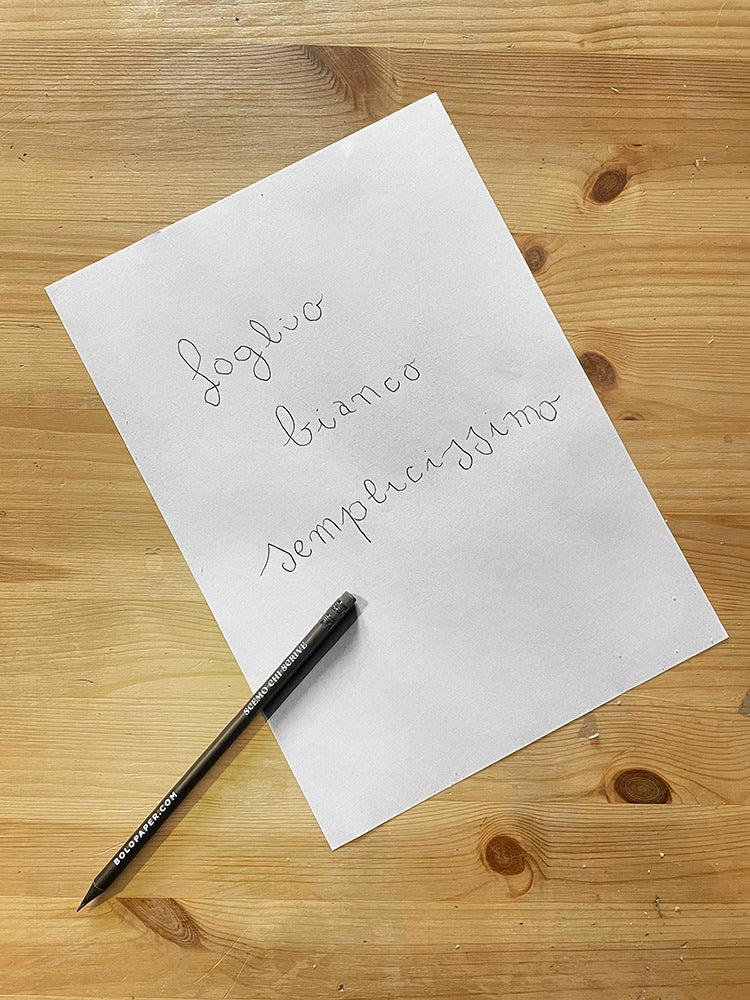 foglio
bianco
semplicissimo
SCEMO CHI SCRIVE
BOLOPAPER.COM